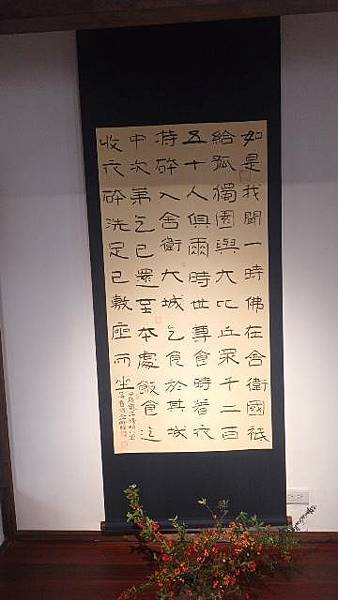 如是我聞一時佛在舍衛國祇
給孤獨園與大比丘眾千二百
五十人俱爾時世尊食時著衣
持砵入舍衛大城乞食於其城
中次第乞已還至本處飯食訖
收衣砵洗足已敷座而坐